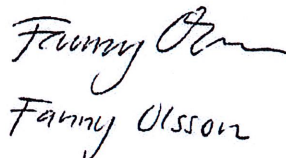 Fanny Olsson
Fanny Olsson